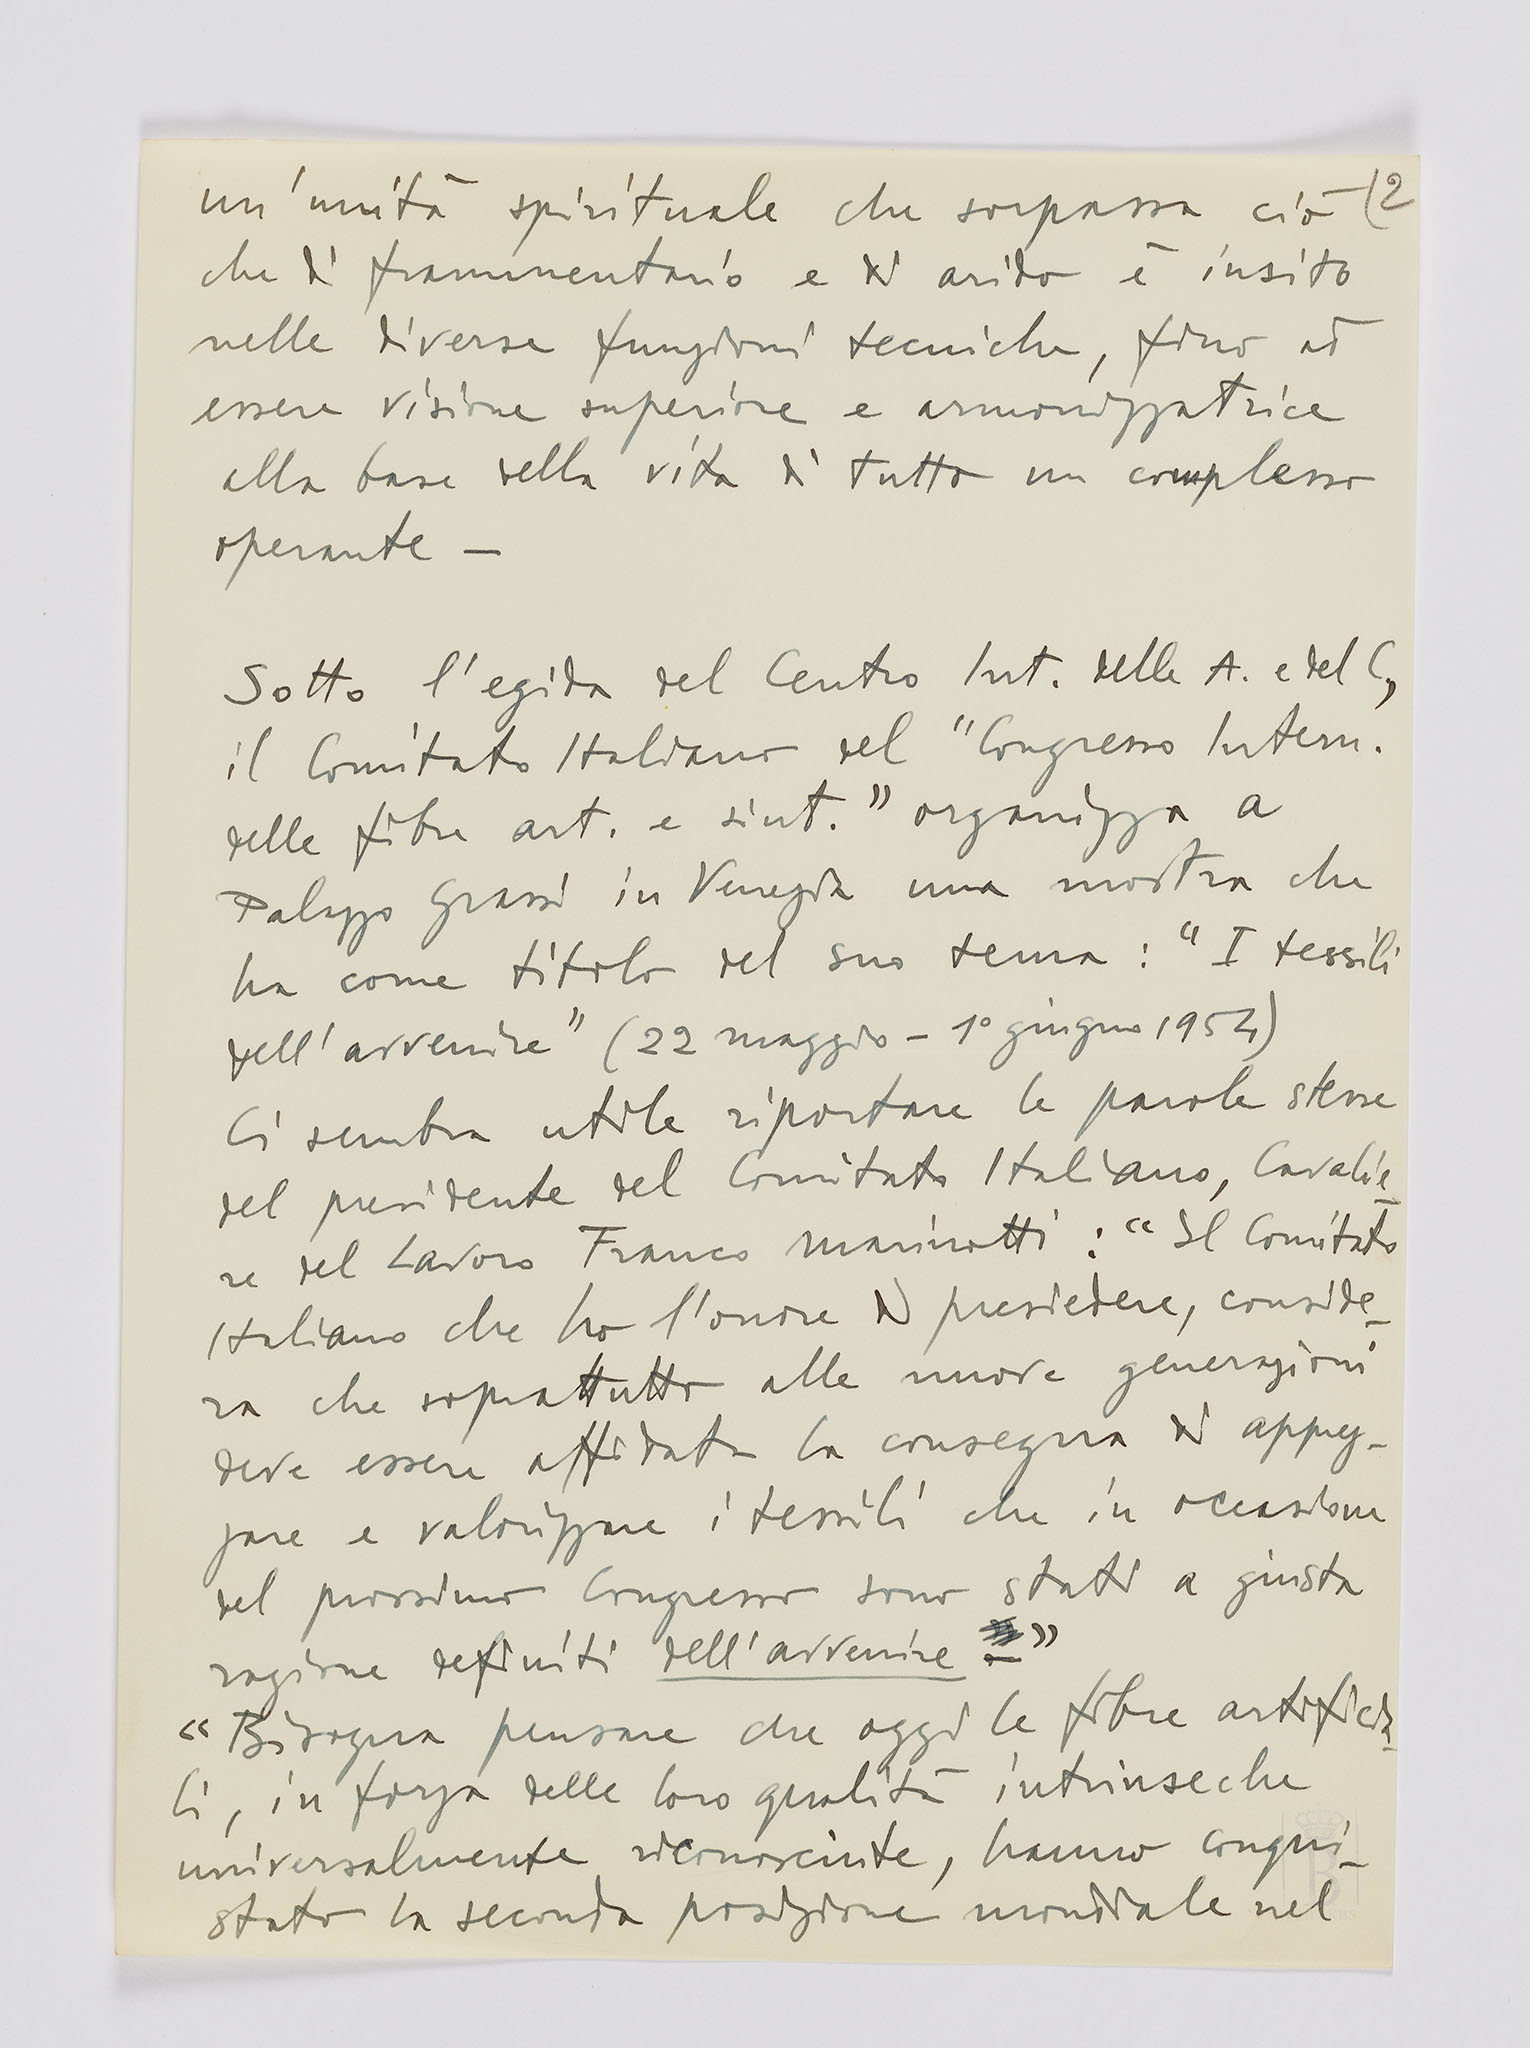 un'unità spirituale che sorpassa ciò (2
che di frammentario e di arido è insito
nelle diverse funzioni tecniche, fino ad
essere visione superiore e armonizzatrice
alla base della vita di tutto un complesso
operante —
Sotto l'egida del Centro Int. delle A. e del C.,
il Comitato Italiano del "Congresso Intern.
delle fibre art. e sint." organizza a
Palazzo Grassi in Venezia una mostra che
ha come titolo del suo tema : "I tessili
dell'avvenire" (22 maggio - 1° giugno 1954)
Ci sembra utile riportare le parole stesse
del presidente del Comitato Italiano, Cavalie-
re del Lavoro Franco Marinotti : "Il Comitato
Italiano che ho l'onore di presiedere, conside-
ra che soprattutto alle nuove generazioni
deve essere affidata la consegna di apprez-
zare e valorizzare i tessili che in occasione
del prossimo Congresso sono stati a giusta
ragione definiti dell'avvenire."
"Bisogna pensare che oggi le fibre artificia-
li, in forza delle loro qualità intrinseche
universalmente riconosciute, hanno conqui-
stato la seconda posizione mondiale nel